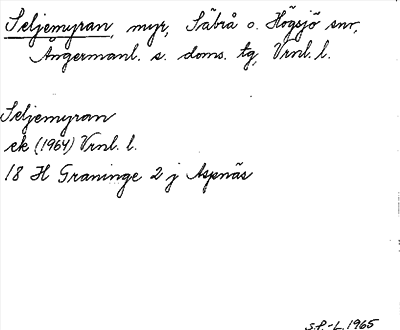 Seljemyran, myr, Säbrå o. Högsjö snr,
Ångermanl. s. doms. tg, Vrnl. l.
Seljemyran
ek (1964) Vrnl. l.
18 H Graninge 2 j Aspnäs
S.P.-L. 1965